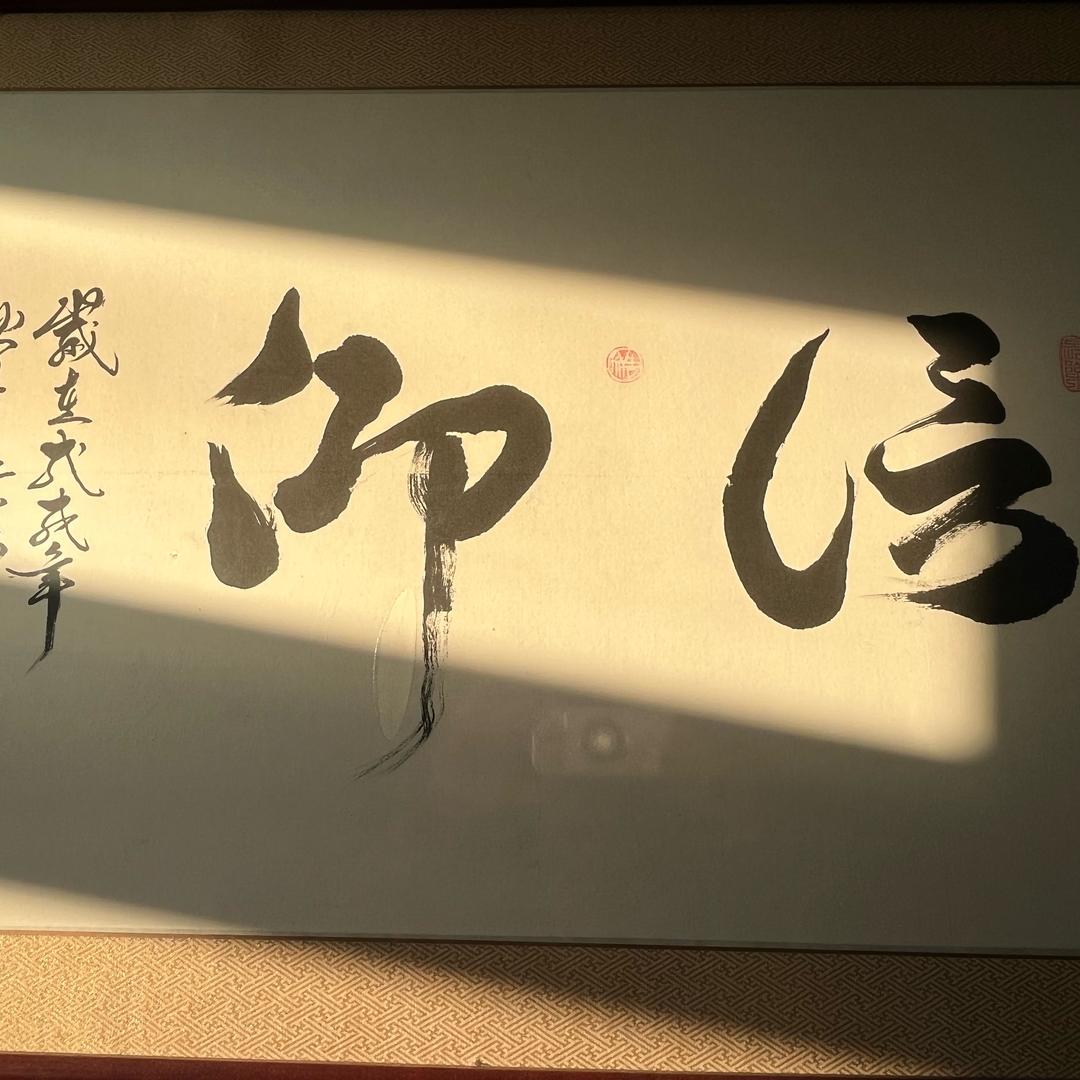 信仰
歲在戊戌年